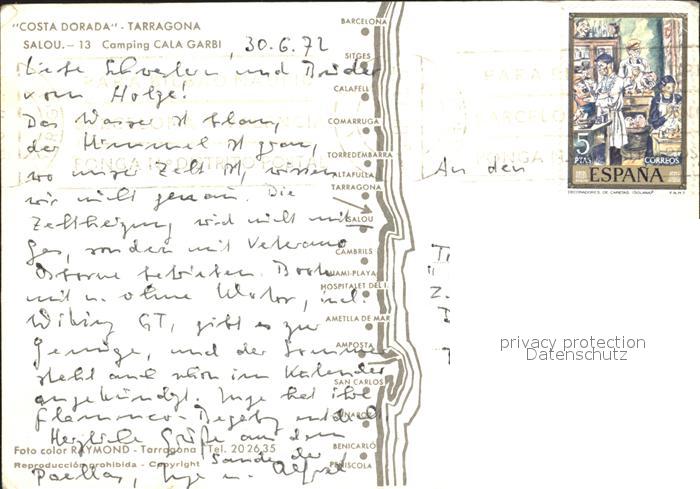 "COSTA DORADA" - TARRAGONA
SALOU. - 13 Camping CALA GARBI
30.6.72
Liebe Schwestern und Brüder
vom Holze!
Das Wasser ist blau,
der Himmel ist grau,
wo unser Zelt ist, wissen
wir nicht genau. Die
Zeltheizung wird nicht mit
Gas, sondern mit Veterano
Osborne betrieben. Boote
mit u. ohne Motor, incl.
Wiking GT, gibt es zur
Genüge, und der Sommer
steht auch schon im Kalender
angekündigt. Inge hat ihre
Flamenco-
Herzliche Grüße aus dem
Lande der
Paellas, Inge u. Alfred
Foto color RAYMOND - Tarragona Tel. 20 26 35
Reproducción prohibida - Copyright
BARCELONA
SITGES
CALAFELL
COMARRUGA
TORREDEMBARRA
ALTAFULLA
TARRAGONA
SALOU
CAMBRILS
MIAMI-PLAYA
HOSPITALET DEL I.
AMETLLA DE MAR
AMPOSTA
SAN CARLOS
VINAROZ
BENICARLÓ
PEÑISCOLA
An den
5
PTAS
CORREOS
ESPAÑA
DECORADORES DE CARETAS. (SOLANA)
F.N.M.T.
privacy protection
Datenschutz